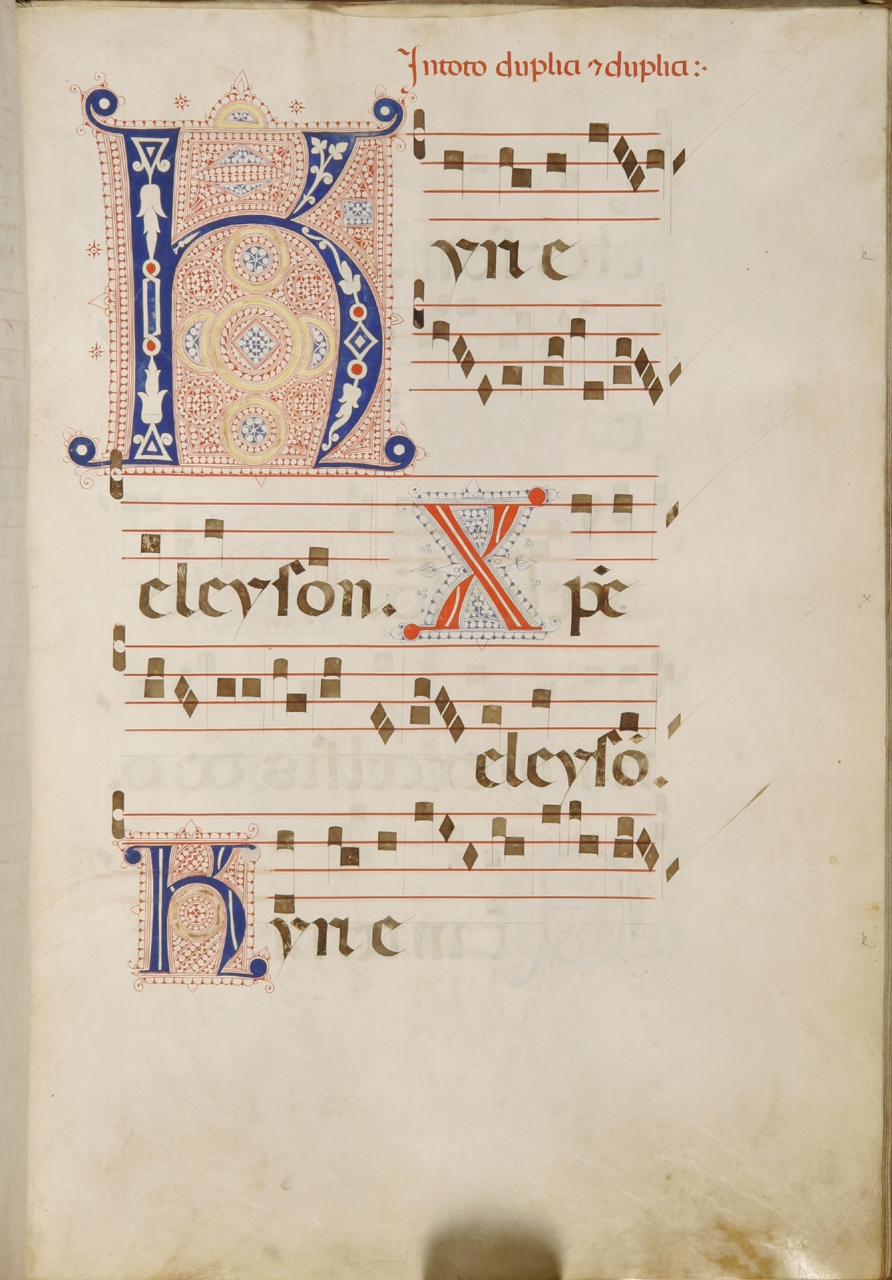 In toto duplici ⁊ duplici:·
Kyrie
eleyson. Xp̄e
eleysō.
Kyrie